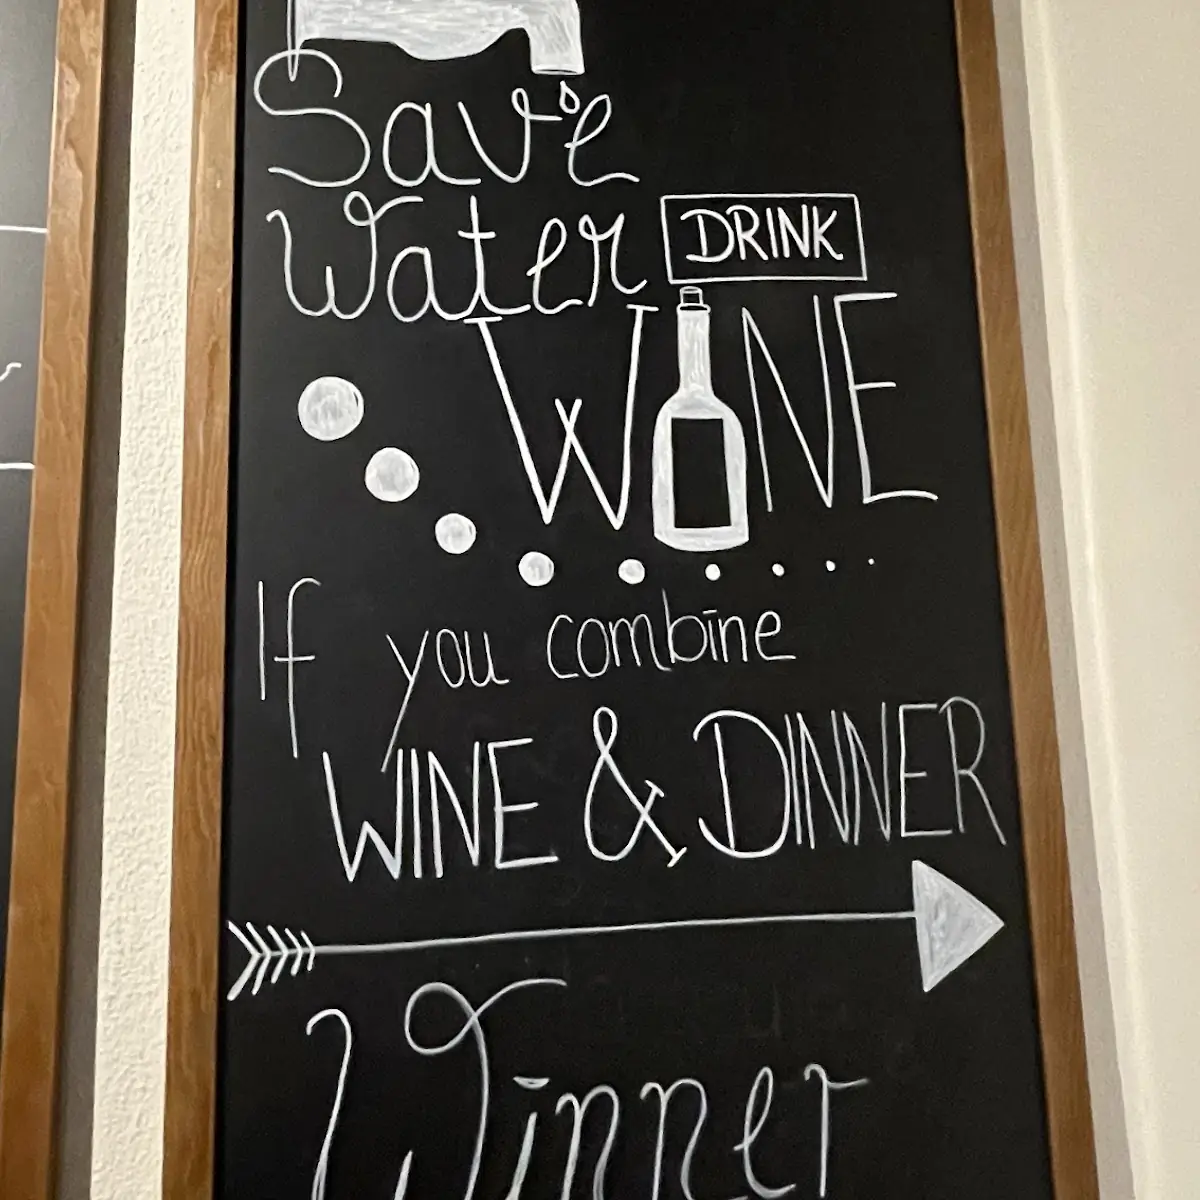 Save
Water DRINK
WINE
If you combine
WINE & DINNER
Winner